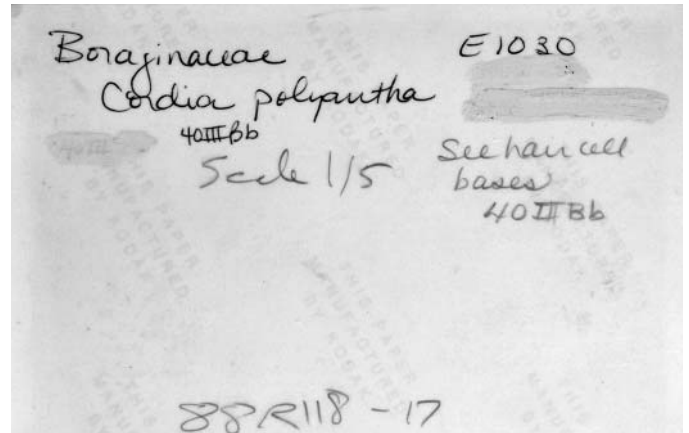 Boraginaceae
E1030
Cordia polyantha
40III Bb
Scale 1/5
See hair cell
bases
40III Bb
40III
THIS PAPER
MANUFACTURED
BY KODAK
88R118-17